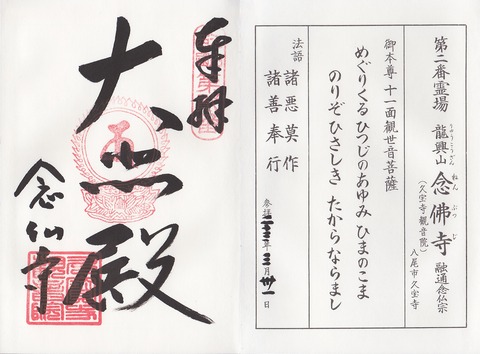 第二番霊場 龍興山 念佛寺 融通念仏宗
りゅうこうざん ねんぶつじ
(久宝寺観音院) 八尾市久宝寺
御本尊 十一面観世音菩薩
めぐりくる ひつじのあゆみ ひまのこま
のりぞひさしき たからならまし
法語 諸悪莫作
諸善奉行
参拝 年 月 日
奉拝
大悲殿
念仏寺